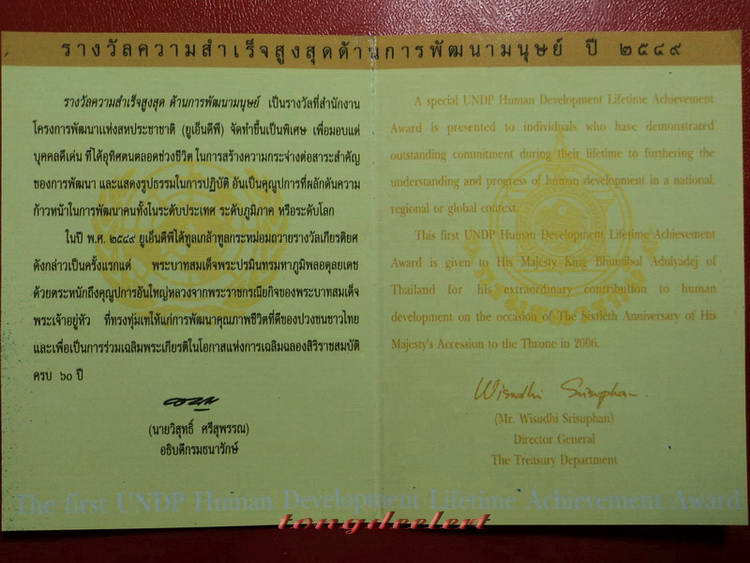 รางวัลความสำเร็จสูงสุดด้านการพัฒนามนุษย์ ปี ๒๕๔๙
รางวัลความสำเร็จสูงสุด ด้านการพัฒนามนุษย์ เป็นรางวัลที่สำนักงาน
โครงการพัฒนาแห่งสหประชาชาติ (ยูเอ็นดีพี) จัดทำขึ้นเป็นพิเศษ เพื่อมอบแด่
บุคคลดีเด่น ที่ได้อุทิศตนตลอดช่วงชีวิต ในการสร้างความกระจ่างต่อสาระสำคัญ
ของการพัฒนา และแสดงรูปธรรมในการปฏิบัติ อันเป็นคุณูปการที่ผลักดันความ
ก้าวหน้าในการพัฒนาคนทั้งในระดับประเทศ ระดับภูมิภาค หรือระดับโลก
ในปี พ.ศ. ๒๕๔๙ ยูเอ็นดีพีได้ทูลเกล้าทูลกระหม่อมถวายรางวัลเกียรติยศ
ดังกล่าวเป็นครั้งแรกแด่ พระบาทสมเด็จพระปรมินทรมหาภูมิพลอดุลยเดช
ด้วยตระหนักถึงคุณูปการอันใหญ่หลวงจากพระราชกรณียกิจของพระบาทสมเด็จ
พระเจ้าอยู่หัว ที่ทรงทุ่มเทให้แก่การพัฒนาคุณภาพชีวิตที่ดีของปวงชนชาวไทย
และเพื่อเป็นการร่วมเฉลิมพระเกียรติในโอกาสแห่งการเฉลิมฉลองสิริราชสมบัติ
ครบ ๖๐ ปี
(นายวิสุทธิ์ ศรีสุพรรณ)
อธิบดีกรมธนารักษ์
A special UNDP Human Development Lifetime Achievement
Award is presented to individuals who have demonstrated
outstanding commitment during their lifetime to furthering the
understanding and progress of human development in a national,
regional or global context.
This first UNDP Human Development Lifetime Achievement
Award is given to His Majesty King Bhumibol Adulyadej of
Thailand for his extraordinary contribution to human
development on the occasion of The Sixtieth Anniversary of His
Majesty's Accession to the Throne in 2006.
Wisudhi Srisuphan
(Mr. Wisudhi Srisuphan)
Director General
The Treasury Department
The first UNDP Human Development Lifetime Achievement Award
tongdeelert